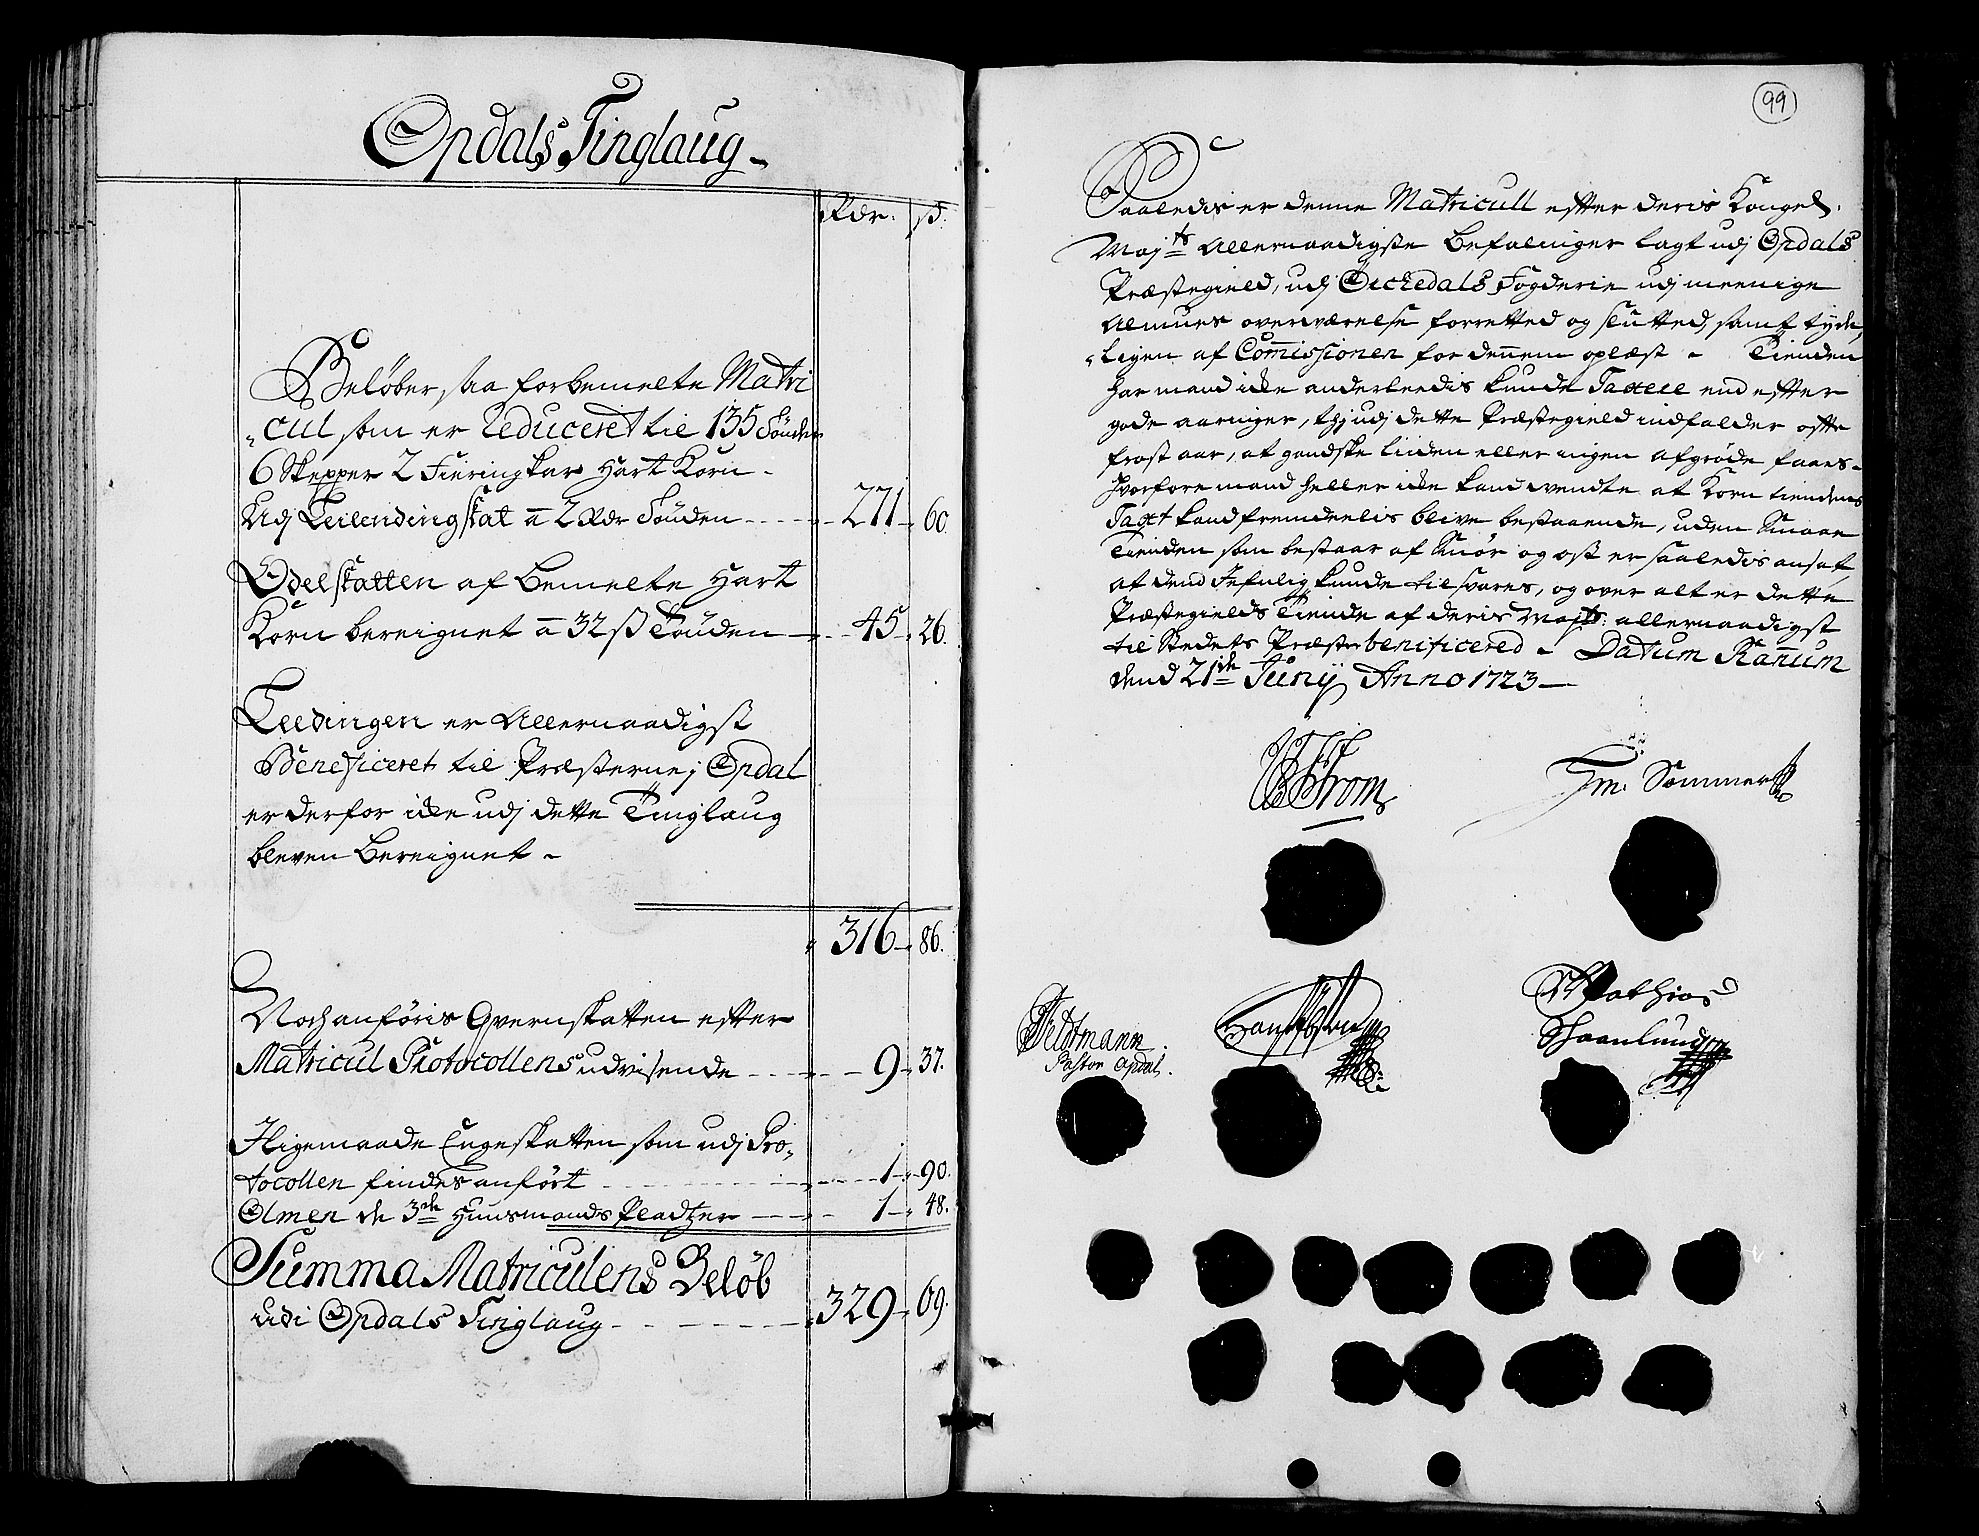 Opdals Tinglaug
Rdr. ß.
Beløber saa forbemelte Matri
cul som er Reduceret til 135 Tønder
6 Skepper 2 Fieringkar Hart Korn
Udj Leilendingskat a 2 Rdr Tønden 271 60
Odelskatten af bemelte Hart
Korn bereignet a 32 ß Tønden 45 26.
Leedingen er Allernaadigst
Beneficeret til Præsterne j Opdal
er derfor icke udj dette Tinglaug
bleven Bereignet
316 86.
Noch anføris Qvernskatten efter
Matricul Protocollens udvisende 9 37.
Iligemaade Engeskatten som udj Pro-
tocollen findes anført 1 90.
de 3de Huusmands Pladtzer 1 48.
Summa Matriculens Beløb
udi Opdals Tinglaug 329 69.
99
Saaledis er denne Matricull efter deris Kongel.
Majts Allernaadigste Befalinger lagt udj Opdals
Præstegield, udj Ørchedals Fogderie udj meenige
Almues overværelse forretted og slutted, samt tyde
ligen af Commissionen for dennem oplæst Tienden
har mand icke anderleedis kunde Taxere end efter
gode aaringer, thj udj dette Præstegield indfalder ofte
frost aar, at gandske liden eller ingen afgrøde faaes
hvorfore mand heller icke kand vendte at Korn tiendens
Taxt kand fremdeelis blive bestaaende, uden Smaae
Tienden som bestaar af Smør og ost er saaledis ansat
at dend kunde tilsvares, og over alt er dette
Præstegields Tiende af deris Majts: allernaadigst
til Stedets Præster benificered Datum Rannum
dend 21de Junij Anno 1723
Strøm
Tm: Sommer
Feldtmann
Pastor Opdal.
Mathias
Skaanlund